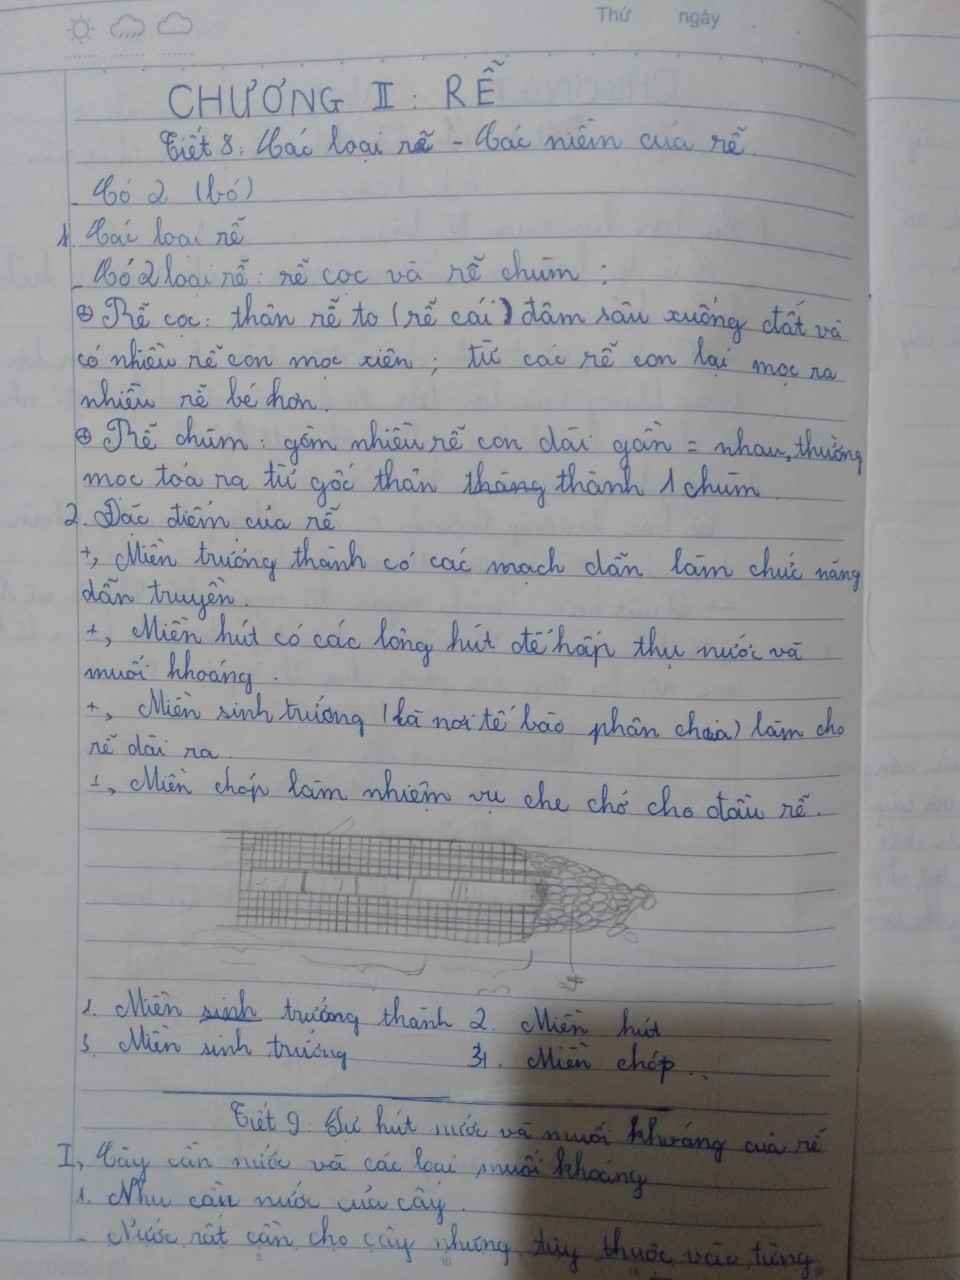 Thứ ngày
CHƯƠNG II : RỄ
Tiết 8: Các loại rễ - Các miền của rễ.
- Có 2 (bó)
1. Các loại rễ
- Có 2 loại rễ: rễ cọc và rễ chùm:
⊕ Rễ cọc: thân rễ to (rễ cái) đâm sâu xuống đất và
có nhiều rễ con mọc xiên; từ các rễ con lại mọc ra
nhiều rễ bé hơn.
⊕ Rễ chùm: gồm nhiều rễ con dài gần = nhau, thường
mọc tỏa ra từ gốc thân tháng thành 1 chùm
2. Đặc điểm của rễ
+, Miền trưởng thành có các mạch dẫn làm chức năng
dẫn truyền.
+, Miền hút có các lông hút để hấp thụ nước và
muối khoáng.
+, Miền sinh trưởng (là nơi tế bào phân chia) làm cho
rễ dài ra.
+, Miền chóp làm nhiệm vụ che chở cho đầu rễ.
1. Miền sinh trưởng thành 2. Miền hút
3. Miền sinh trưởng 4. Miền chóp..
Tiết 9: Sự hút nước và muối khoáng của rễ
I, Cây cần nước và các loại muối khoáng
1. Nhu cần nước của cây.
- Nước rất cần cho cây nhưng tùy thuộc vào từng